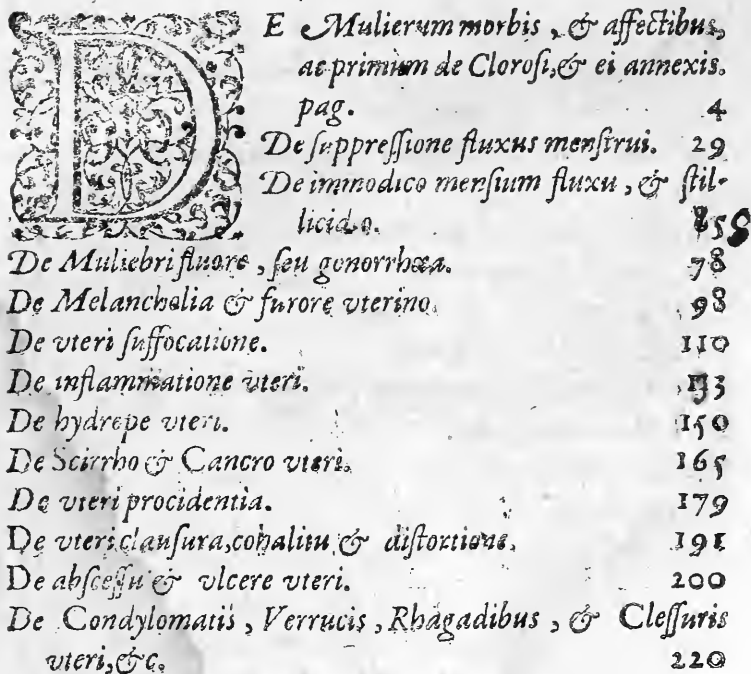 DE Mulierum morbis, & affectibus,
ac primùm de Clorosi, & ei annexis.
pag. 4
De suppressione fluxus menstrui. 29
De immodico mensium fluxu, & stil-
licidio.
De Muliebri fluore, seu gonorrhœa. 78
De Melancholia & furore vterino. 98
De vteri suffocatione. 110
De inflammatione vteri. 133
De hydrope vteri. 150
De Scirrho & Cancro vteri. 165
De vteri procidentia. 179
De vteri clausura, coalitu & distortione. 191
De abscessu & vlcere vteri. 200
De Condylomatis, Verrucis, Rhagadibus, & Clessuris
vteri, &c. 220